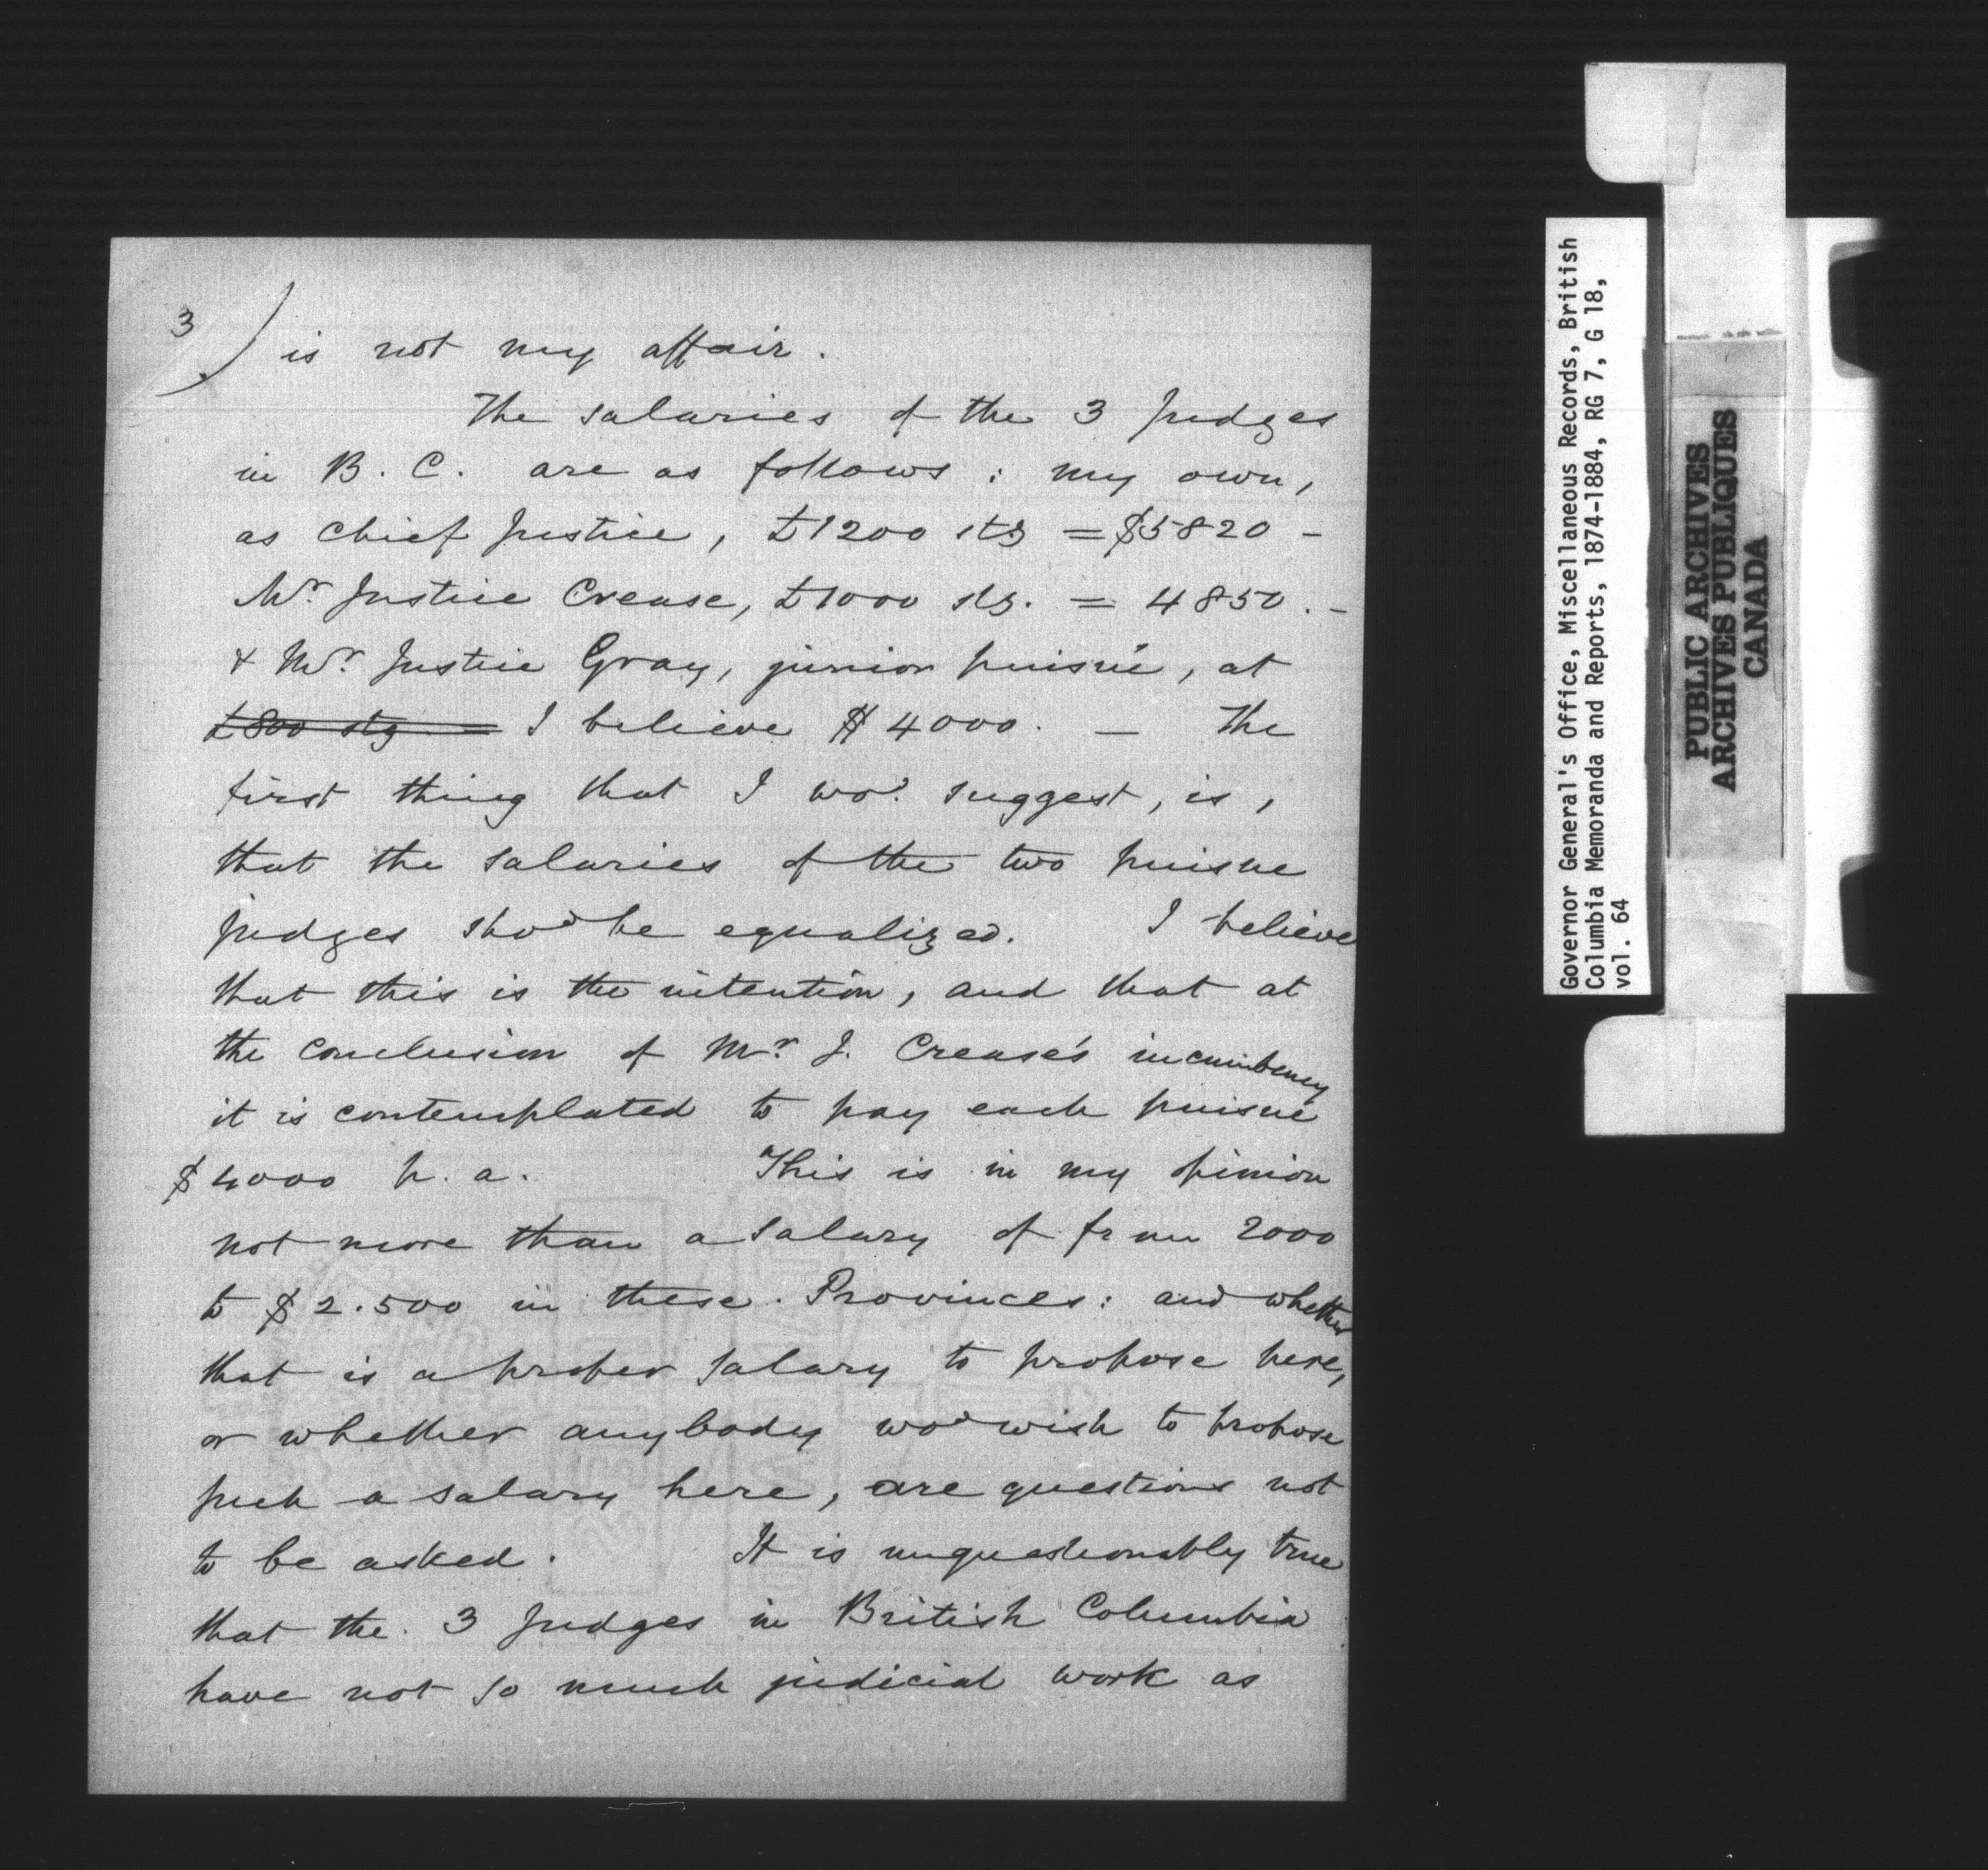 3) is not my affair.
The salaries of the 3 Judges
in B. C. are as follows: my own,
as Chief Justice, £1200 stg = $5820 -
Mr. Justice Crease, £1000 stg. = 4850. -
& Mr. Justice Gray, junior puisné, at
£800 stg — I believe $4000. — The
first thing that I wod. suggest, is,
that the salaries of the two puisne
judges shod be equalized. I believe
that this is the intention, and that at
the conclusion of Mr. J. Crease's incumbency
it is contemplated to pay each puisné
$4000 p. a. This is in my opinion
not more than a salary of from 2000
to $2.500 in these Provinces: and whether
that is a proper salary to propose here,
or whether anybody wod wish to propose
such a salary here, are questions not
to be asked. It is unquestionably true
that the 3 Judges in British Columbia
have not so much judicial work as
Governor General's Office, Miscellaneous Records, British
Columbia Memoranda and Reports, 1874-1884, RG 7, G 18,
vol. 64
PUBLIC ARCHIVES
ARCHIVES PUBLIQUES
CANADA